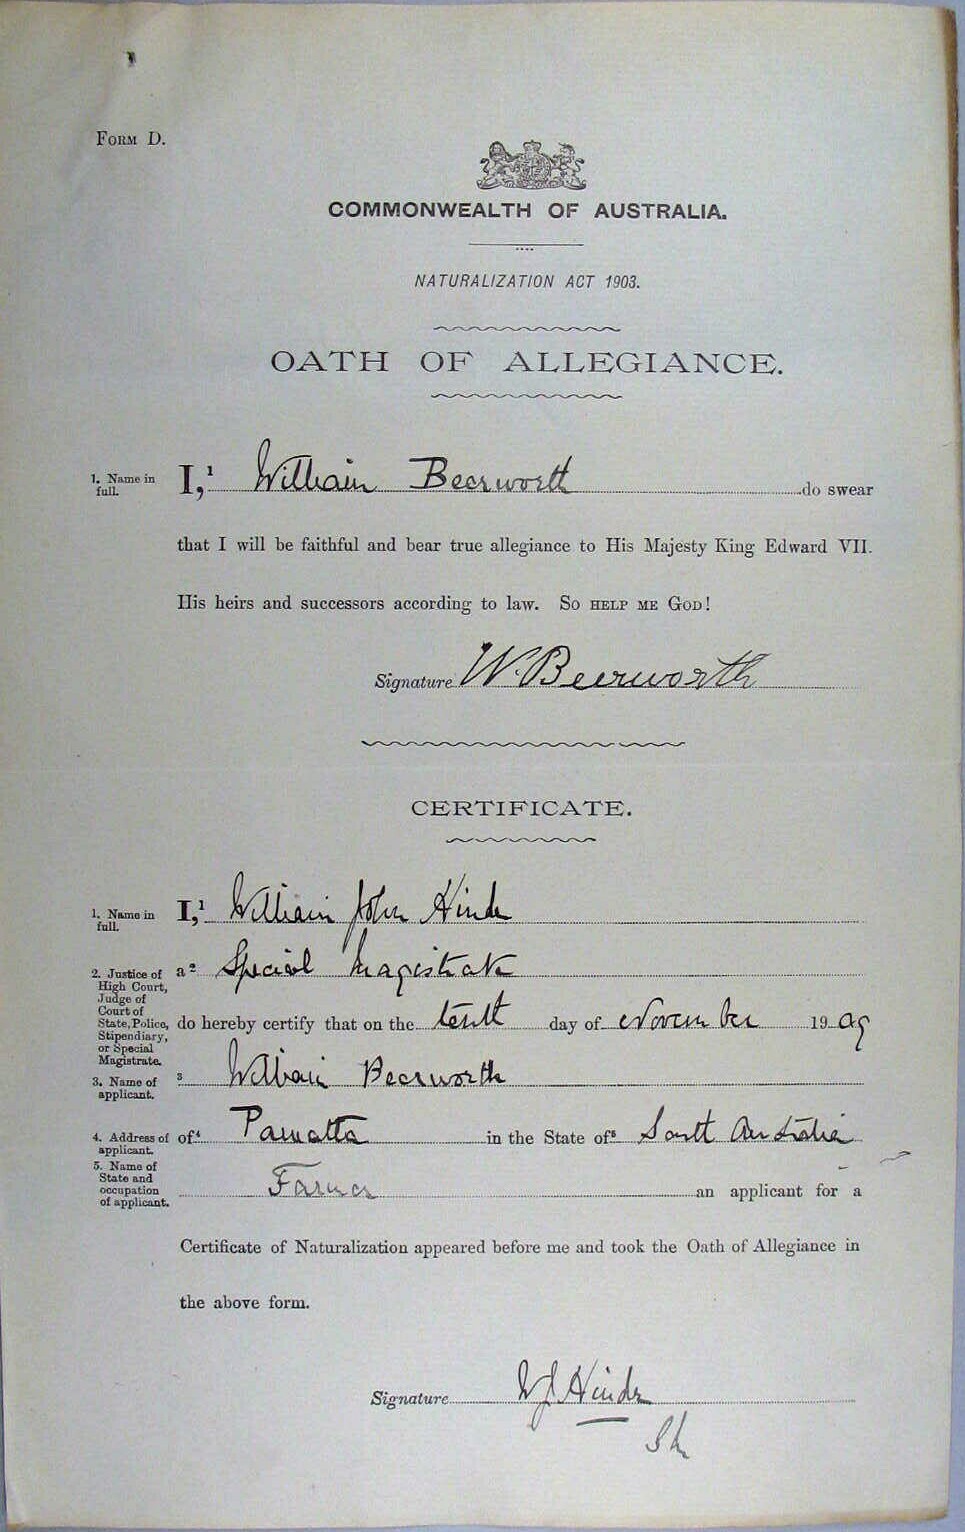 FORM D.
COMMONWEALTH OF AUSTRALIA.
NATURALIZATION ACT 1903.
OATH OF ALLEGIANCE.
1. Name in full.
I,¹ William Beerworth do swear
that I will be faithful and bear true allegiance to His Majesty King Edward VII.
His heirs and successors according to law. So HELP ME GOD!
Signature W. Beerworth
CERTIFICATE.
1. Name in full.
I,¹ William John Hinde
2. Justice of High Court, Judge of Court of State, Police, Stipendiary, or Special Magistrate.
a² Special Magistrate
do hereby certify that on the tenth day of November 1909
3. Name of applicant.
³ William Beerworth
4. Address of applicant.
of⁴ in the State of⁵ South Australia
5. Name of State and occupation of applicant.
Farmer an applicant for a
Certificate of Naturalization appeared before me and took the Oath of Allegiance in
the above form.
Signature W J Hinde
SM